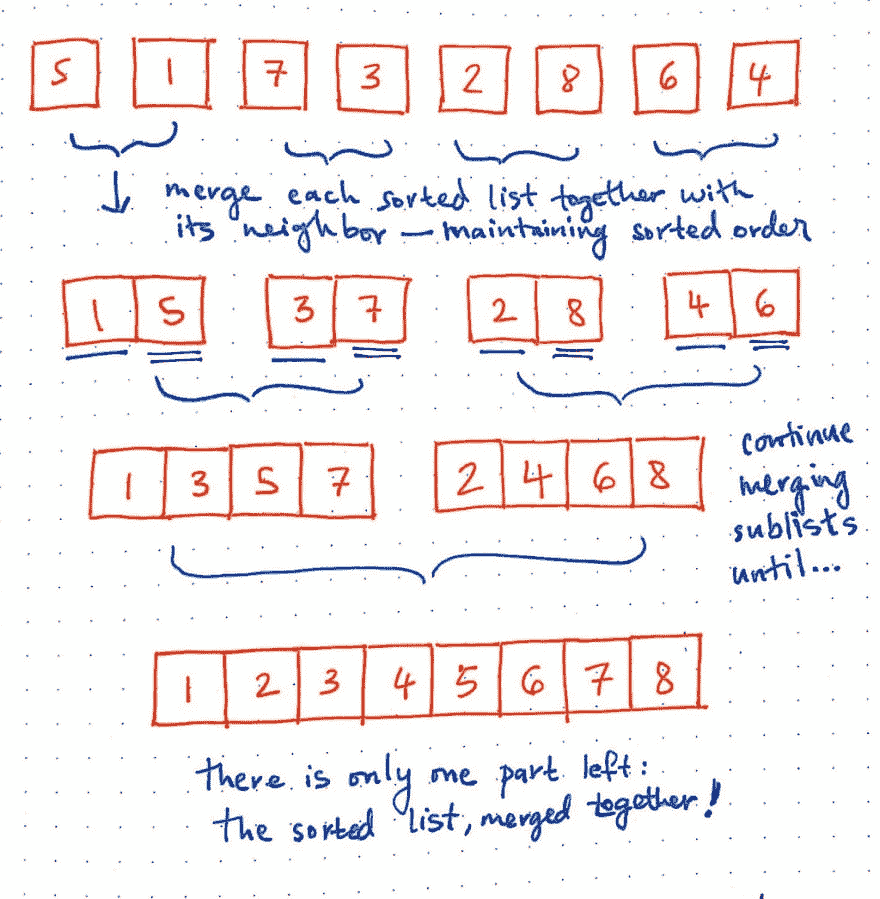 5 1 7 3 2 8 6 4
merge each sorted list together with
its neighbor — maintaining sorted order
1 5 3 7 2 8 4 6
1 3 5 7 2 4 6 8
continue
merging
sublists
until...
1 2 3 4 5 6 7 8
there is only one part left:
the sorted list, merged together!